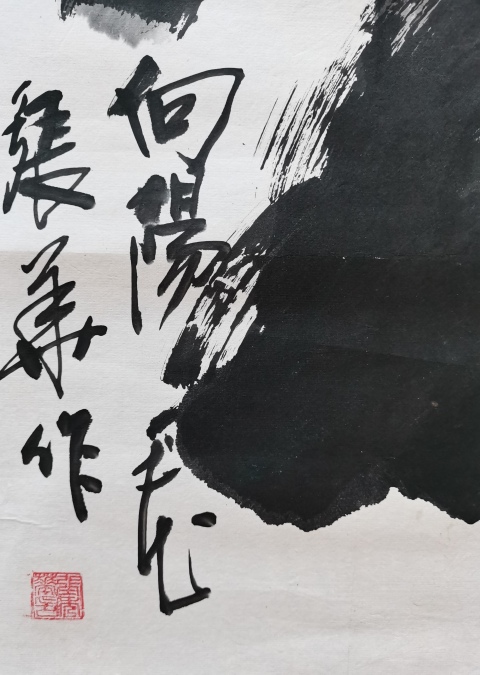 向陽花
張華作